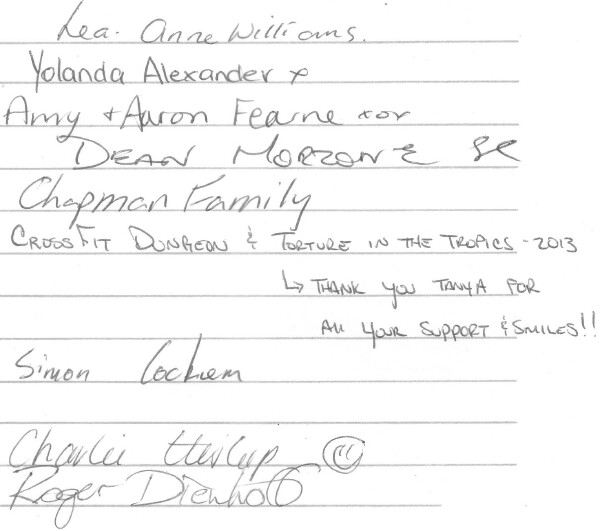 Lea-Anne Williams.
Yolanda Alexander x
Amy + Aaron Fearne xor
DEAN MORZONE
Chapman Family
CROSSFIT DUNGEON & TORTURE IN THE TROPICS - 2013
↳ THANK YOU TANYA FOR
All YOUR SUPPORT & SMILES!!
Simon
Charlie
Roger